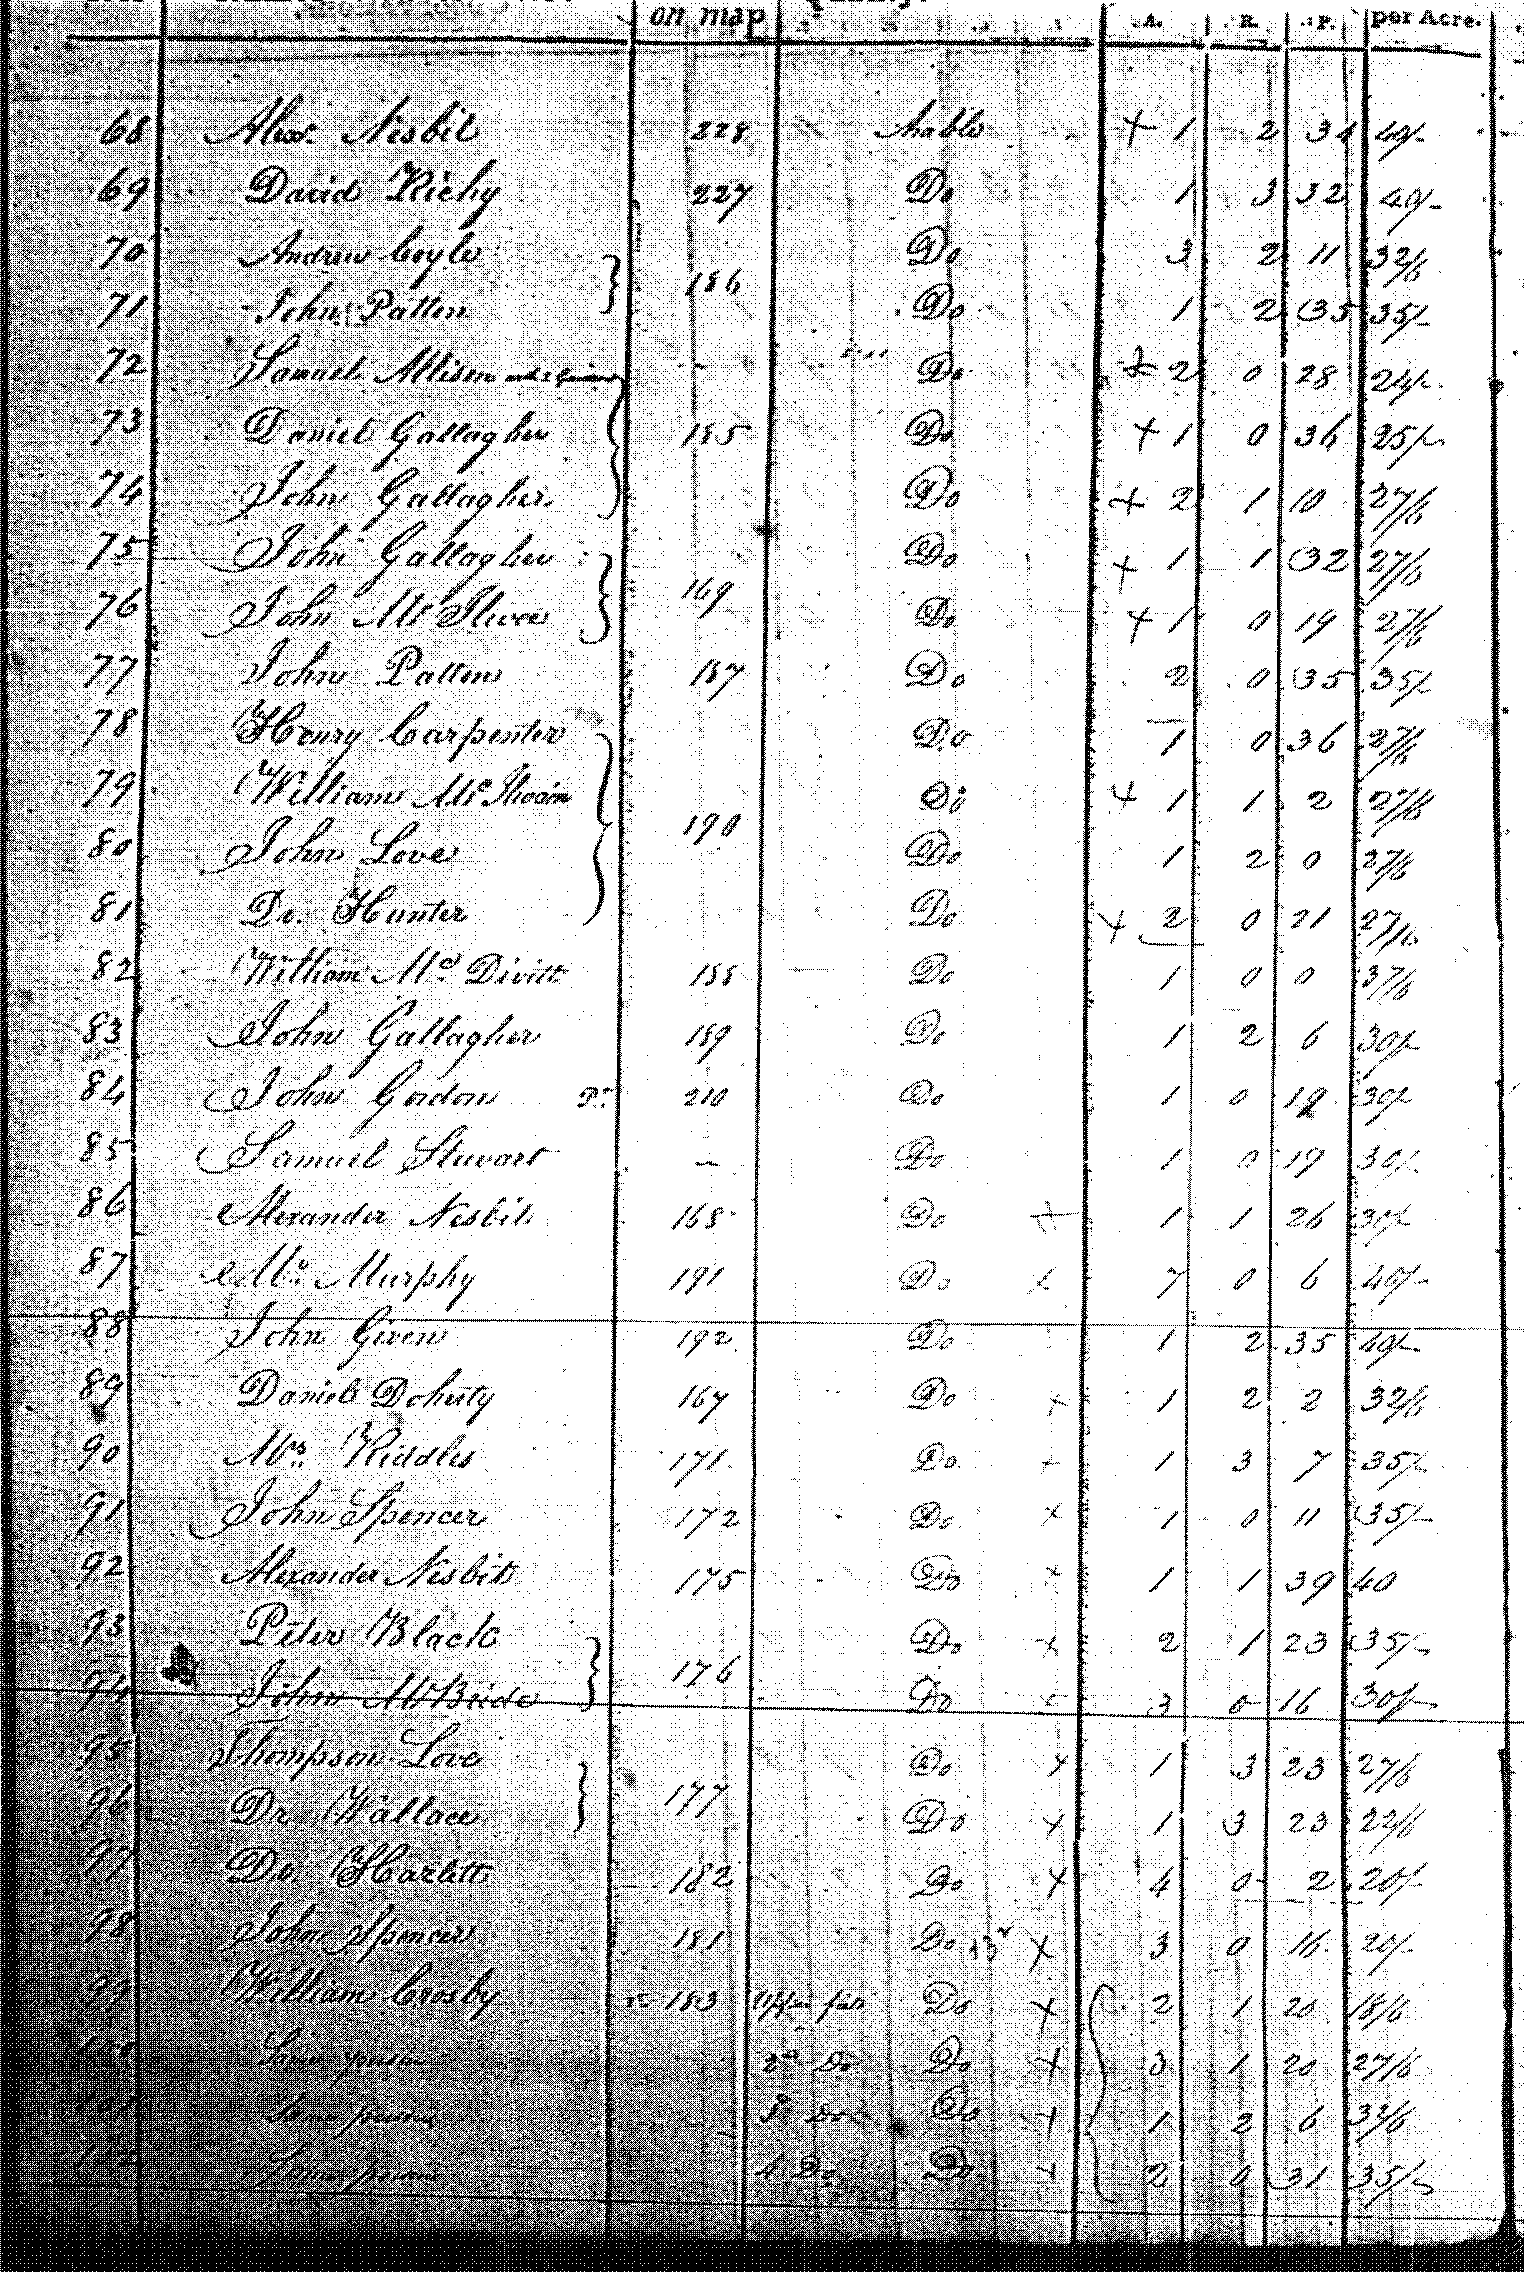 on map A. R. P. per Acre.
68 Alexr. Nesbit 228 Arable + 1 2 34 40/-
69 David Richy 227 Do 1 3 32 40/-
70 Andrew Coyle 186 Do 3 2 11 32/6
71 John Patten Do 1 2 35 35/-
72 Samuel Allison - Do + 2 0 28 24/-
73 Daniel Gallagher 185 Do + 1 0 36 25/-
74 John Gallagher Do + 2 1 10 27/6
75 John Gallagher 169 Do + 1 1 32 27/6
76 John Mc Do + 1 0 19 27/6
77 John Patten 187 Do 2 0 35 35/-
78 Henry Carpenter 190 Do 1 0 36 27/6
79 William Mc Ilwain Do + 1 1 2 27/6
80 John Love Do 1 2 0 27/6
81 Dr. Hunter Do + 2 0 21 27/6
82 William Mc Divitt 188 Do 1 0 0 37/6
83 John Gallagher 189 Do 1 2 6 30/-
84 John Gordon 210 Do 1 0 19 30/-
85 Samuel Stewart - Do 1 0 19 30/-
86 Alexander Nesbit 168 Do + 1 1 26 30/-
87 Mr. Murphy 191 Do + 7 0 6 40/-
88 John Given 192 Do 1 2 35 40/-
89 Daniel Doherty 167 Do + 1 2 2 32/6
90 Mrs. Riddles 171 Do + 1 3 7 35/-
91 John Spencer 172 Do + 1 0 11 35/-
92 Alexander Nesbit 175 Do + 1 1 39 40
93 Peter Black 176 Do + 2 1 23 35/-
94 John McBride Do 3 0 16 30/-
95 Thompson Love 177 Do + 1 3 23 27/6
96 Dr. Wallace Do + 1 3 23 22/6
97 Dr. Hazlett 182 Do + 4 0 2 20/-
98 John Spencer 181 Do + 3 0 16 20/-
99 William Crosby 183 Do + 2 1 20 18/6
2d Do Do + 3 1 20 27/6
3d Do Do + 1 2 6 32/6
4 Do Do + 2 0 31 35/-